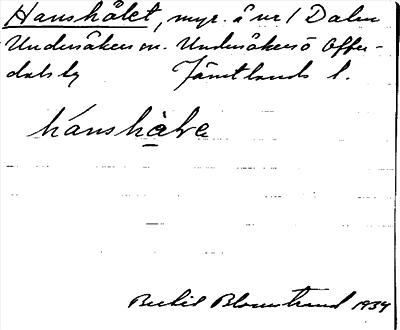 Hanshålet, myr. å nr 1 Dalen
Undersåkers sn. Undersåkers o Offer-
dals tg Jämtlands l.
hanshàla
Bertil Blomstrand 1934